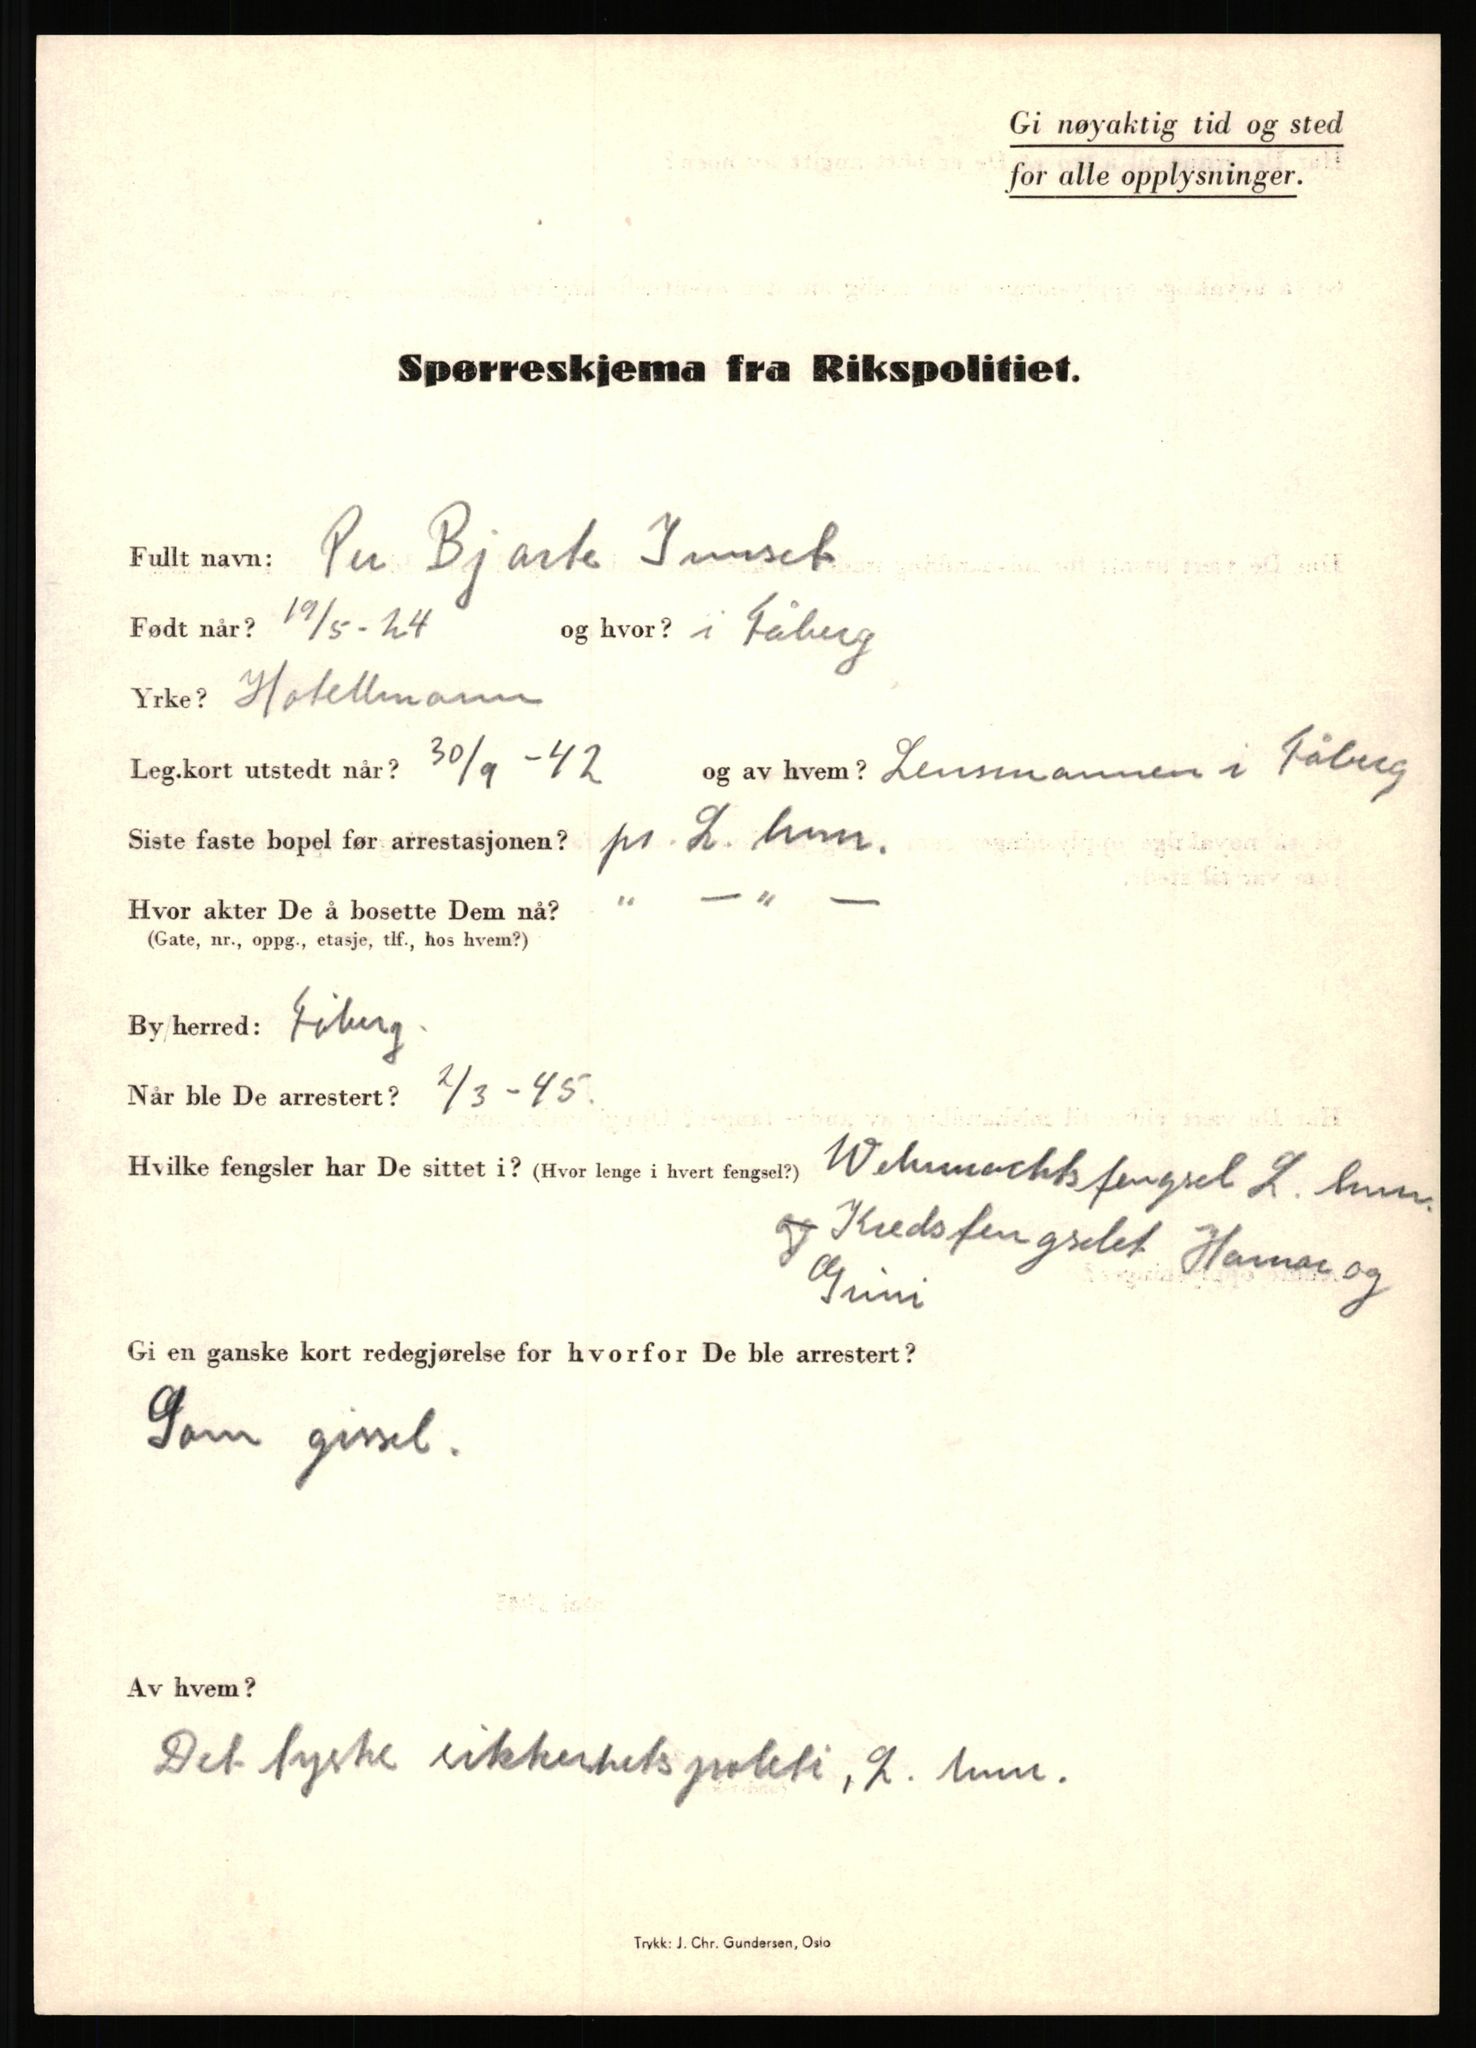 Gi nøyaktig tid og sted
for alle opplysninger.
Spørreskjema fra Rikspolitiet.
Fullt navn: Per Bjarte Imset
Født når? 19/5-24 og hvor? i Fåberg
Yrke? Hotellmann
Leg.kort utstedt når? 30/9 -42 og av hvem? Lensmannen i Fåberg
Siste faste bopel før arrestasjonen? pr. L. hmr.
Hvor akter De å bosette Dem nå? " — " —
(Gate, nr., oppg., etasje, tlf., hos hvem?)
By/herred: Fåberg.
Når ble De arrestert? 2/3 -45.
Hvilke fengsler har De sittet i? (Hvor lenge i hvert fengsel?) Wehrmachtsfengsel L. hmr.
og Kredsfengselet Hamar og
Grini
Gi en ganske kort redegjørelse for hvorfor De ble arrestert?
Som gissel.
Av hvem?
Det tyske sikkerhetspoleti, L. hmr.
Trykk: J. Chr. Gundersen, Oslo